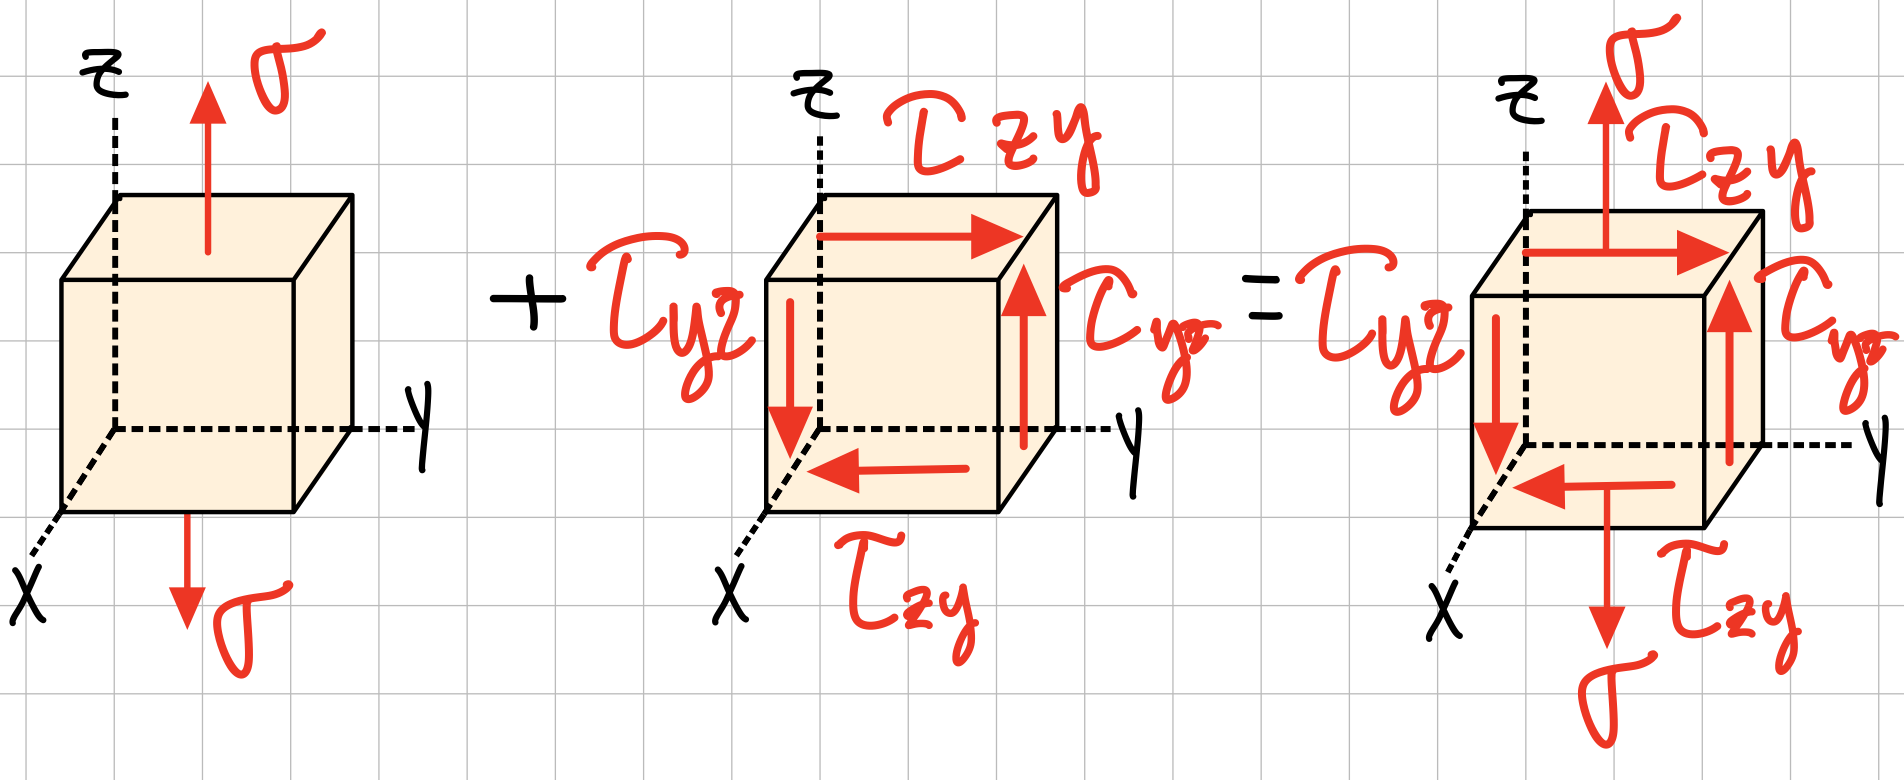 z σ
y
x σ
+
z τzy
τyz τyz
y
x τzy
=
z σ
τzy
τyz τyz
y
x τzy
σ